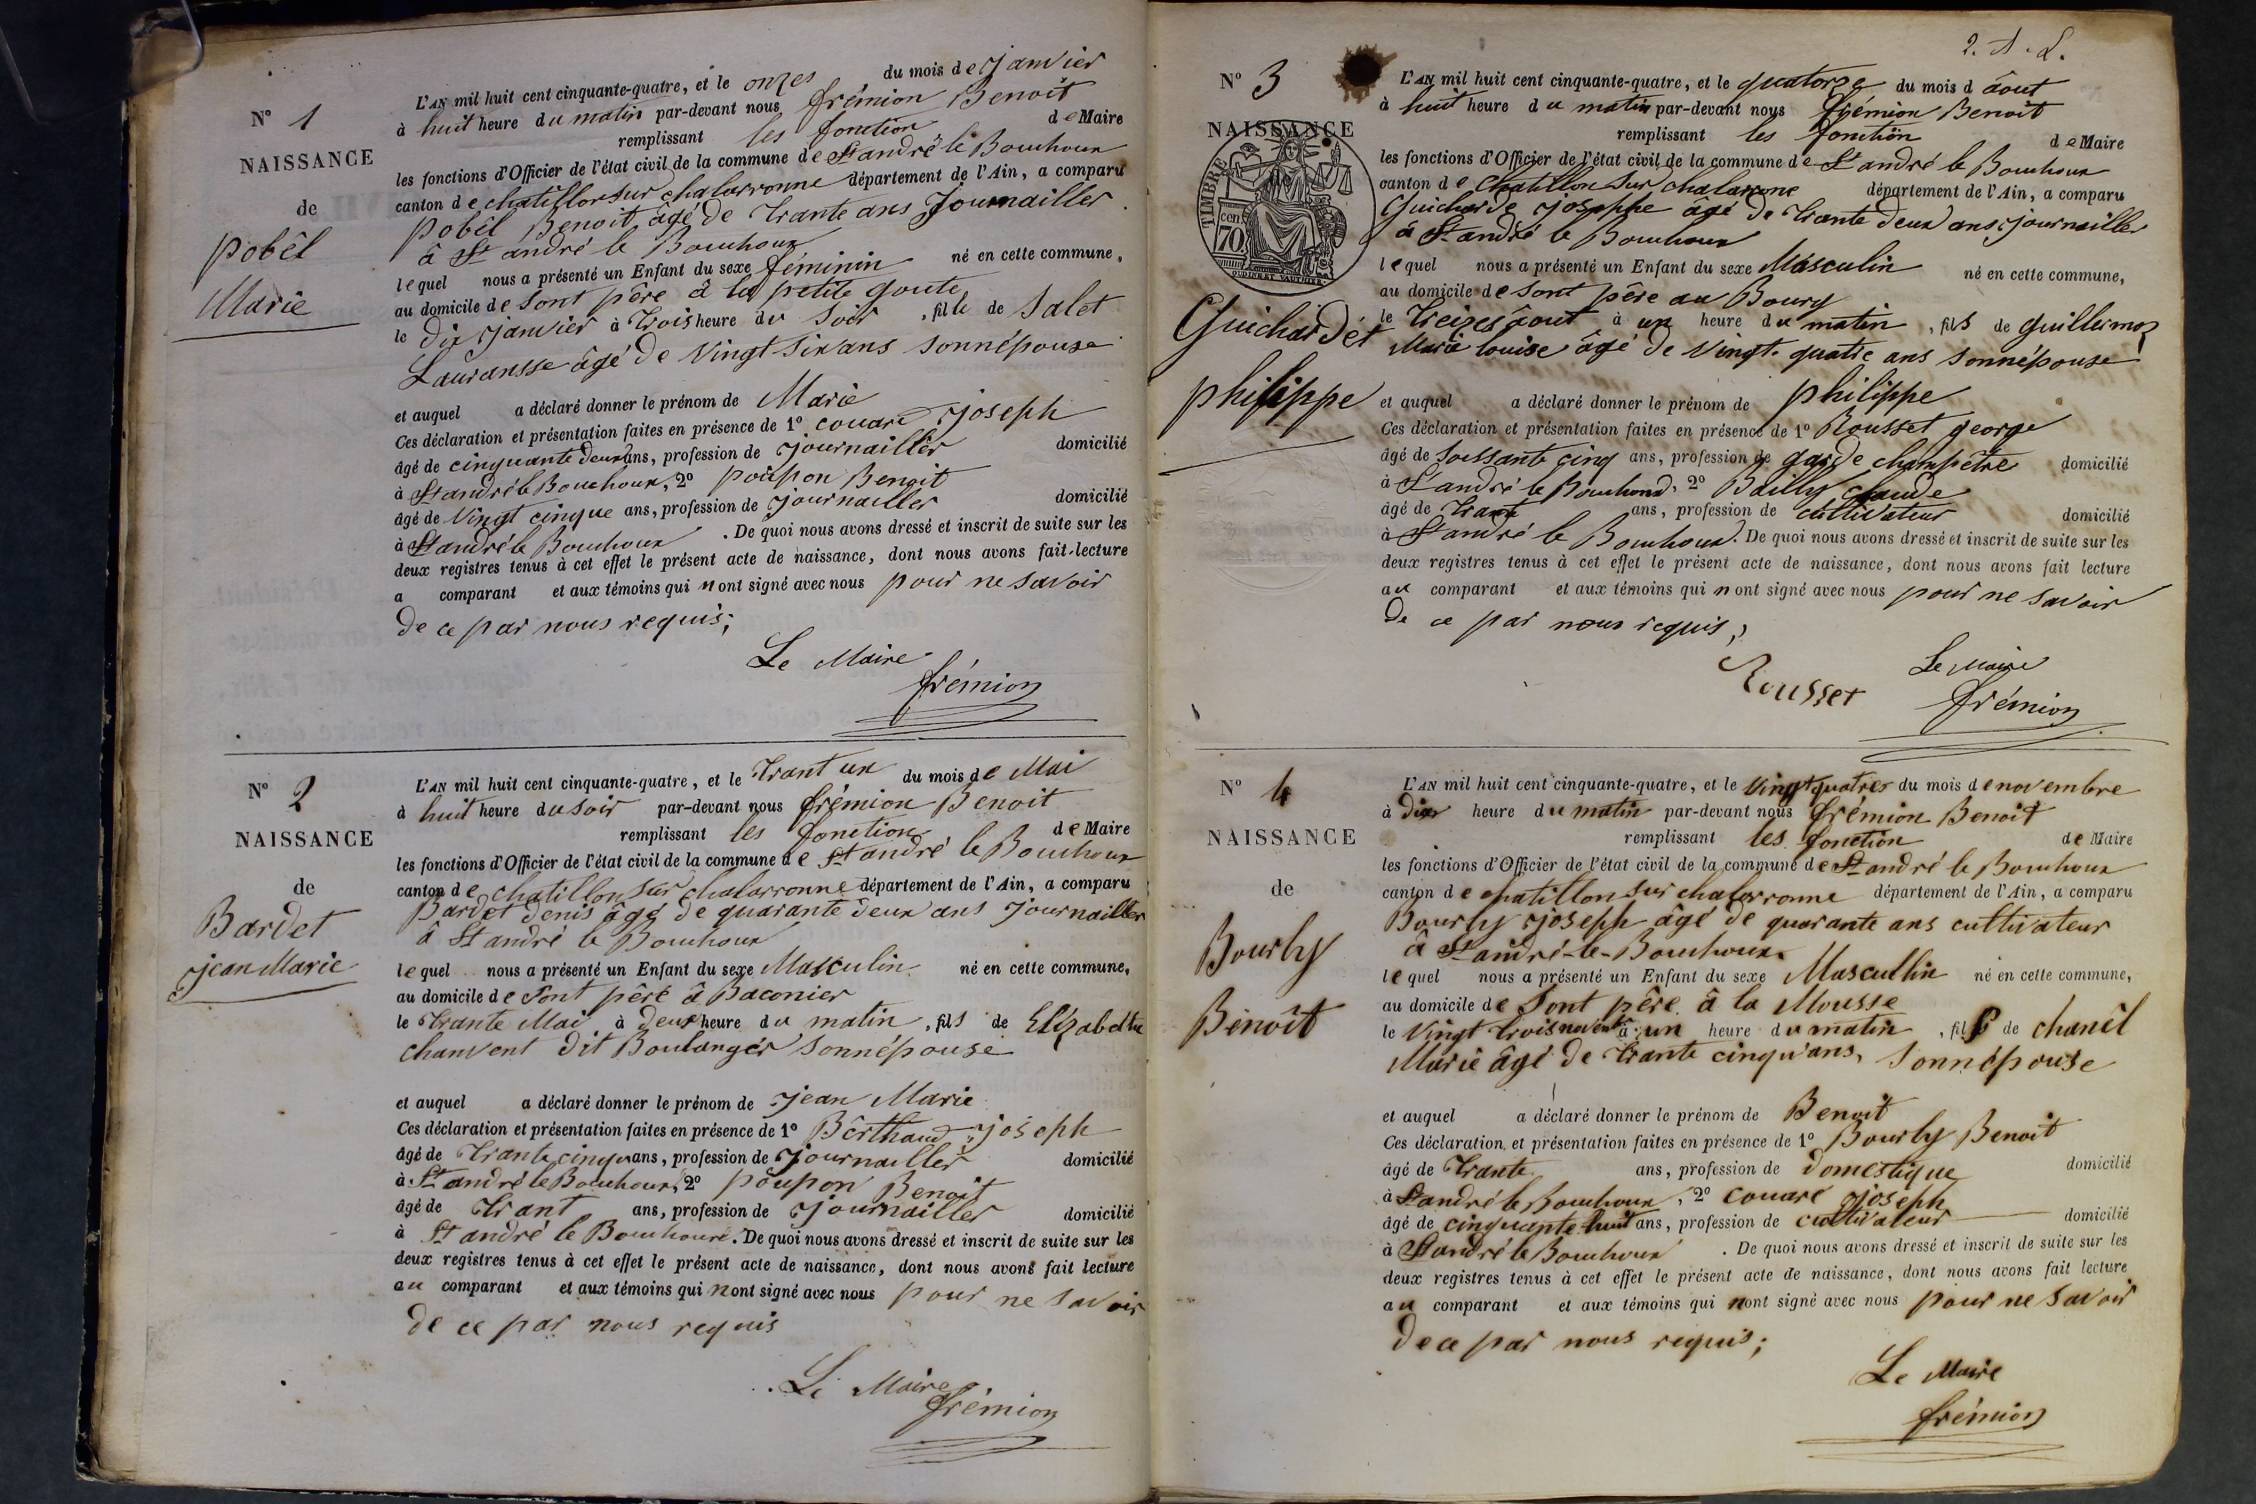 N° 1
NAISSANCE
de
pobêl
Marie
L'AN mil huit cent cinquante-quatre, et le onzes du mois de janvier
à huit heure du matin par-devant nous frémion Benoît
remplissant les fonction de Maire
les fonctions d'Officier de l'état civil de la commune de St andré le Bouchoux
canton de chatillon sur chalarronne département de l'Ain, a comparu
pobêl Benoit âgé de trante ans Journailler
à St andré le Bouchoux
lequel nous a présenté un Enfant du sexe féminin né en cette commune,
au domicile de sont père à la petite goute
le dix janvier à trois heure du soir, fille de Salet
Lauransse âgé de vingt six ans sonnépouse
et auquel a déclaré donner le prénom de Marie
Ces déclaration et présentation faites en présence de 1° couare joseph
âgé de cinquante deux ans, profession de journailler domicilié
à St andré le Bouchoux, 2° poupon Benoit
âgé de vingt cinque ans, profession de journailler domicilié
à St andré le Bouchoux. De quoi nous avons dressé et inscrit de suite sur les
deux registres tenus à cet effet le présent acte de naissance, dont nous avons fait lecture
a comparant et aux témoins qui n ont signé avec nous pour ne savoir
de ce par nous requis;
Le Maire
frémion
N° 2
NAISSANCE
de
Bardet
jean Marie
L'AN mil huit cent cinquante-quatre, et le trant un du mois de Mai
à huit heure du soir par-devant nous frémion Benoit
remplissant les fonction de Maire
les fonctions d'Officier de l'état civil de la commune de St andré le Bouchoux
canton de chatillon sur chalarronne département de l'Ain, a comparu
Bardet denis âgé de quarante deux ans journailler
à St andré le Bouchoux
lequel nous a présenté un Enfant du sexe Masculin né en cette commune,
au domicile de sont père à Baconier
le trante Mai à deux heure du matin, fils de Elizabette
chanvent dit Boulanger sonnépouse
et auquel a déclaré donner le prénom de jean Marie
Ces déclaration et présentation faites en présence de 1° Berthaud joseph
âgé de trante cinq ans, profession de journailler domicilié
à St andré le Bouchoux, 2° poupon Benoit
âgé de trant ans, profession de journailler domicilié
à St andré le Bouchoux. De quoi nous avons dressé et inscrit de suite sur les
deux registres tenus à cet effet le présent acte de naissance, dont nous avons fait lecture
au comparant et aux témoins qui n ont signé avec nous pour ne savoir
de ce par nous requis
Le Maire
frémion
2. A. L.
N° 3
NAISSANCE
TIMBRE
cen.
70.
OUDINE ET VAUTHIER
Guichardét
philippe
L'AN mil huit cent cinquante-quatre, et le quatorze du mois d âout
à huit heure du matin par-devant nous frémion Benoît
remplissant les fonction de Maire
les fonctions d'Officier de l'état civil de la commune de St andré le Bouchoux
canton de Chatillon sur chalarone département de l'Ain, a comparu
Guicharde josephe âgé de trante deux ans journailler
à St andré le Bouchoux
lequel nous a présenté un Enfant du sexe Masculin né en cette commune,
au domicile de sont père au Bourg
le treizes âout à un heure du matin, fils de guillermoz
Marie louise âgé de vingt-quatre ans sonnépouse
et auquel a déclaré donner le prénom de philippe
Ces déclaration et présentation faites en présence de 1° Rousset george
âgé de soissante cinq ans, profession de garde champêtre domicilié
à St andré le Bouchoux, 2° Bailly claude
âgé de trante ans, profession de cultivateur domicilié
à St andré le Bouchoux. De quoi nous avons dressé et inscrit de suite sur les
deux registres tenus à cet effet le présent acte de naissance, dont nous avons fait lecture
au comparant et aux témoins qui n ont signé avec nous pour ne savoir
de ce par nous requis;
Rousset
Le Maire
frémion
N° 4
NAISSANCE
de
Bourly
Benoît
L'AN mil huit cent cinquante-quatre, et le vingt quatres du mois de novembre
à dix heure du matin par-devant nous frémion Benoit
remplissant les fonction de Maire
les fonctions d'Officier de l'état civil de la commune de St andré le Bouchoux
canton de chatillon sur chalarronne département de l'Ain, a comparu
Bourly joseph âgé de quarante ans cultivateur
à St andré-le-Bouchoux
lequel nous a présenté un Enfant du sexe Mascullin né en cette commune,
au domicile de sont père à la Mousse
le vingt trois novembr à un heure du matin, fils de chanêl
Marie âgé de trante cinqu'ans, sonnépouse
et auquel a déclaré donner le prénom de Benoit
Ces déclaration et présentation faites en présence de 1° Bourly Benoit
âgé de trante ans, profession de domestique domicilié
à St andré le Bouchoux, 2° couare joseph
âgé de cinquante huit ans, profession de cultivateur domicilié
à St andré le Bouchoux. De quoi nous avons dressé et inscrit de suite sur les
deux registres tenus à cet effet le présent acte de naissance, dont nous avons fait lecture
au comparant et aux témoins qui n ont signé avec nous pour ne savoir
de ce par nous requis;
Le Maire
frémion